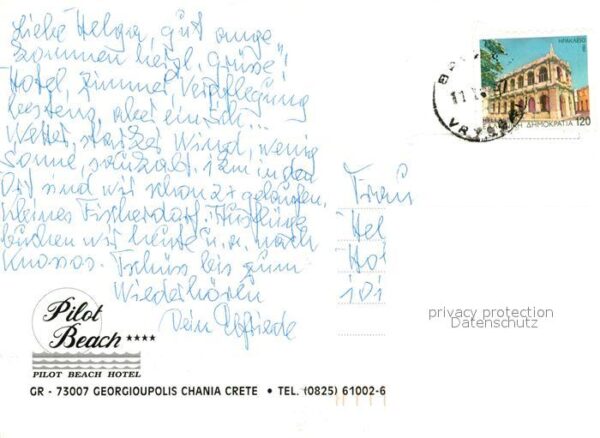 Liebe Helga, gut ange
kommen herzl. Grüße"!
Hotel, Zimmer Verpflegung
bestens, aber ein
Wetter, starker Wind, wenig
Sonne, saukalt. 1 km in den
Ort sind wir schon 2x gelaufen,
kleines Fischerdorf. Ausflüge
buchen wir heute u.a. nach
Knossos. Tschüss bis zum
Wiederhören
Dein Elfriede
ΗΡΑΚΛΕΙΟ
ΔΗΜΟΚΡΑΤΙΑ 120
11
Frau
Hel
Hol
101
privacy protection
Datenschutz
Pilot
Beach ****
PILOT BEACH HOTEL
GR - 73007 GEORGIOUPOLIS CHANIA CRETE • TEL. (0825) 61002-6